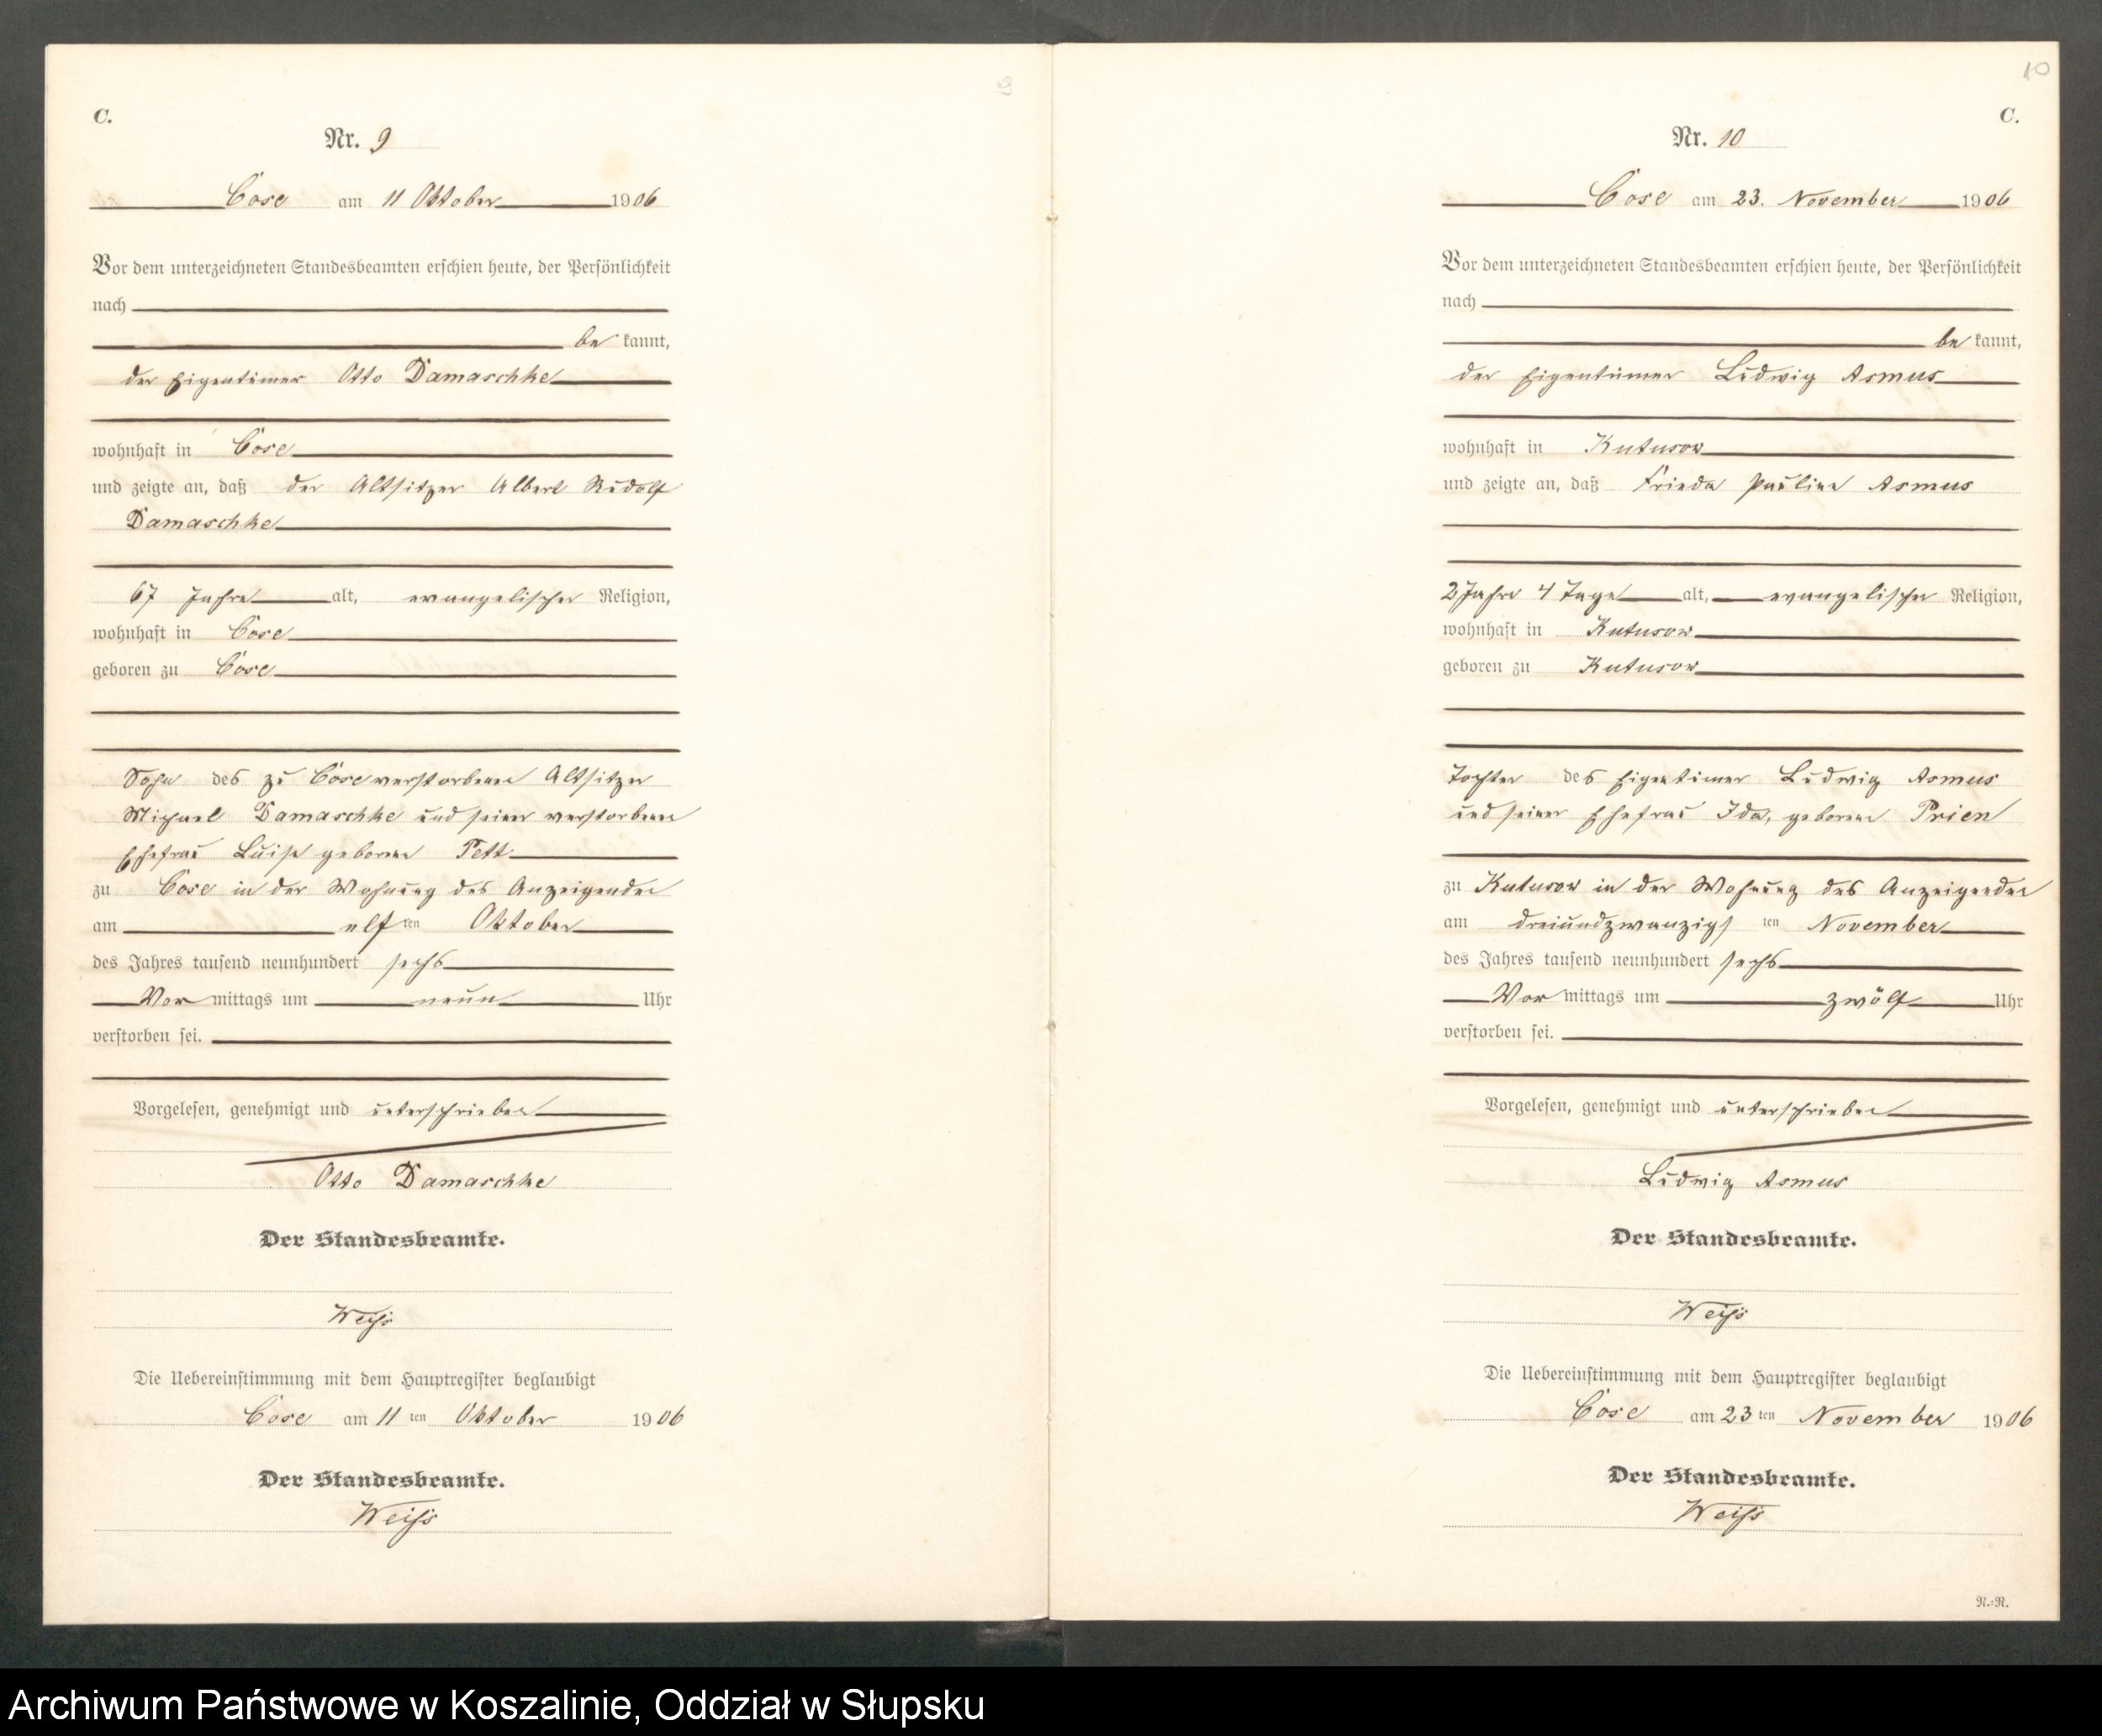 9
C.
Nr. 9
Cose am 11 Oktober 1906
Vor dem unterzeichneten Standesbeamten erschien heute, der Persönlichkeit
nach
be kannt,
der Eigentümer Otto Damaschke
wohnhaft in Cose
und zeigte an, daß der Altsitzer Albert Rudolf
Damaschke
67 Jahre alt, evangelischer Religion,
wohnhaft in Cose
geboren zu Cose
Sohn des zu Cose verstorbenen Altsitzer
Michael Damaschke und seiner verstorbenen
Ehefrau Luise geborene Tett
zu Cose in der Wohnung des Anzeigenden
am elf ten Oktober
des Jahres tausend neunhundert sechs
Vor mittags um neun Uhr
verstorben sei.
Vorgelesen, genehmigt und unterschrieben
Otto Damaschke
Der Standesbeamte.
Weiß
Die Uebereinstimmung mit dem Hauptregister beglaubigt
Cose am 11 ten Oktober 1906
Der Standesbeamte.
Weiß
10
C.
Nr. 10
Cose am 23. November 1906
Vor dem unterzeichneten Standesbeamten erschien heute, der Persönlichkeit
nach
be kannt,
der Eigentümer Ludwig Asmus
wohnhaft in Kutusow
und zeigte an, daß Frieda Pauline Asmus
2 Jahre 4 Tage alt, evangelischer Religion,
wohnhaft in Kutusow
geboren zu Kutusow
Tochter des Eigentümer Ludwig Asmus
und seiner Ehefrau Ida, geborene Prien
zu Kutusow in der Wohnung des Anzeigenden
am dreiundzwanzigs ten November
des Jahres tausend neunhundert sechs
Vor mittags um zwölf Uhr
verstorben sei.
Vorgelesen, genehmigt und unterschrieben
Ludwig Asmus
Der Standesbeamte.
Weiß
Die Uebereinstimmung mit dem Hauptregister beglaubigt
Cose am 23 ten November 1906
Der Standesbeamte.
Weiß
N.=N.
Archiwum Państwowe w Koszalinie, Oddział w Słupsku